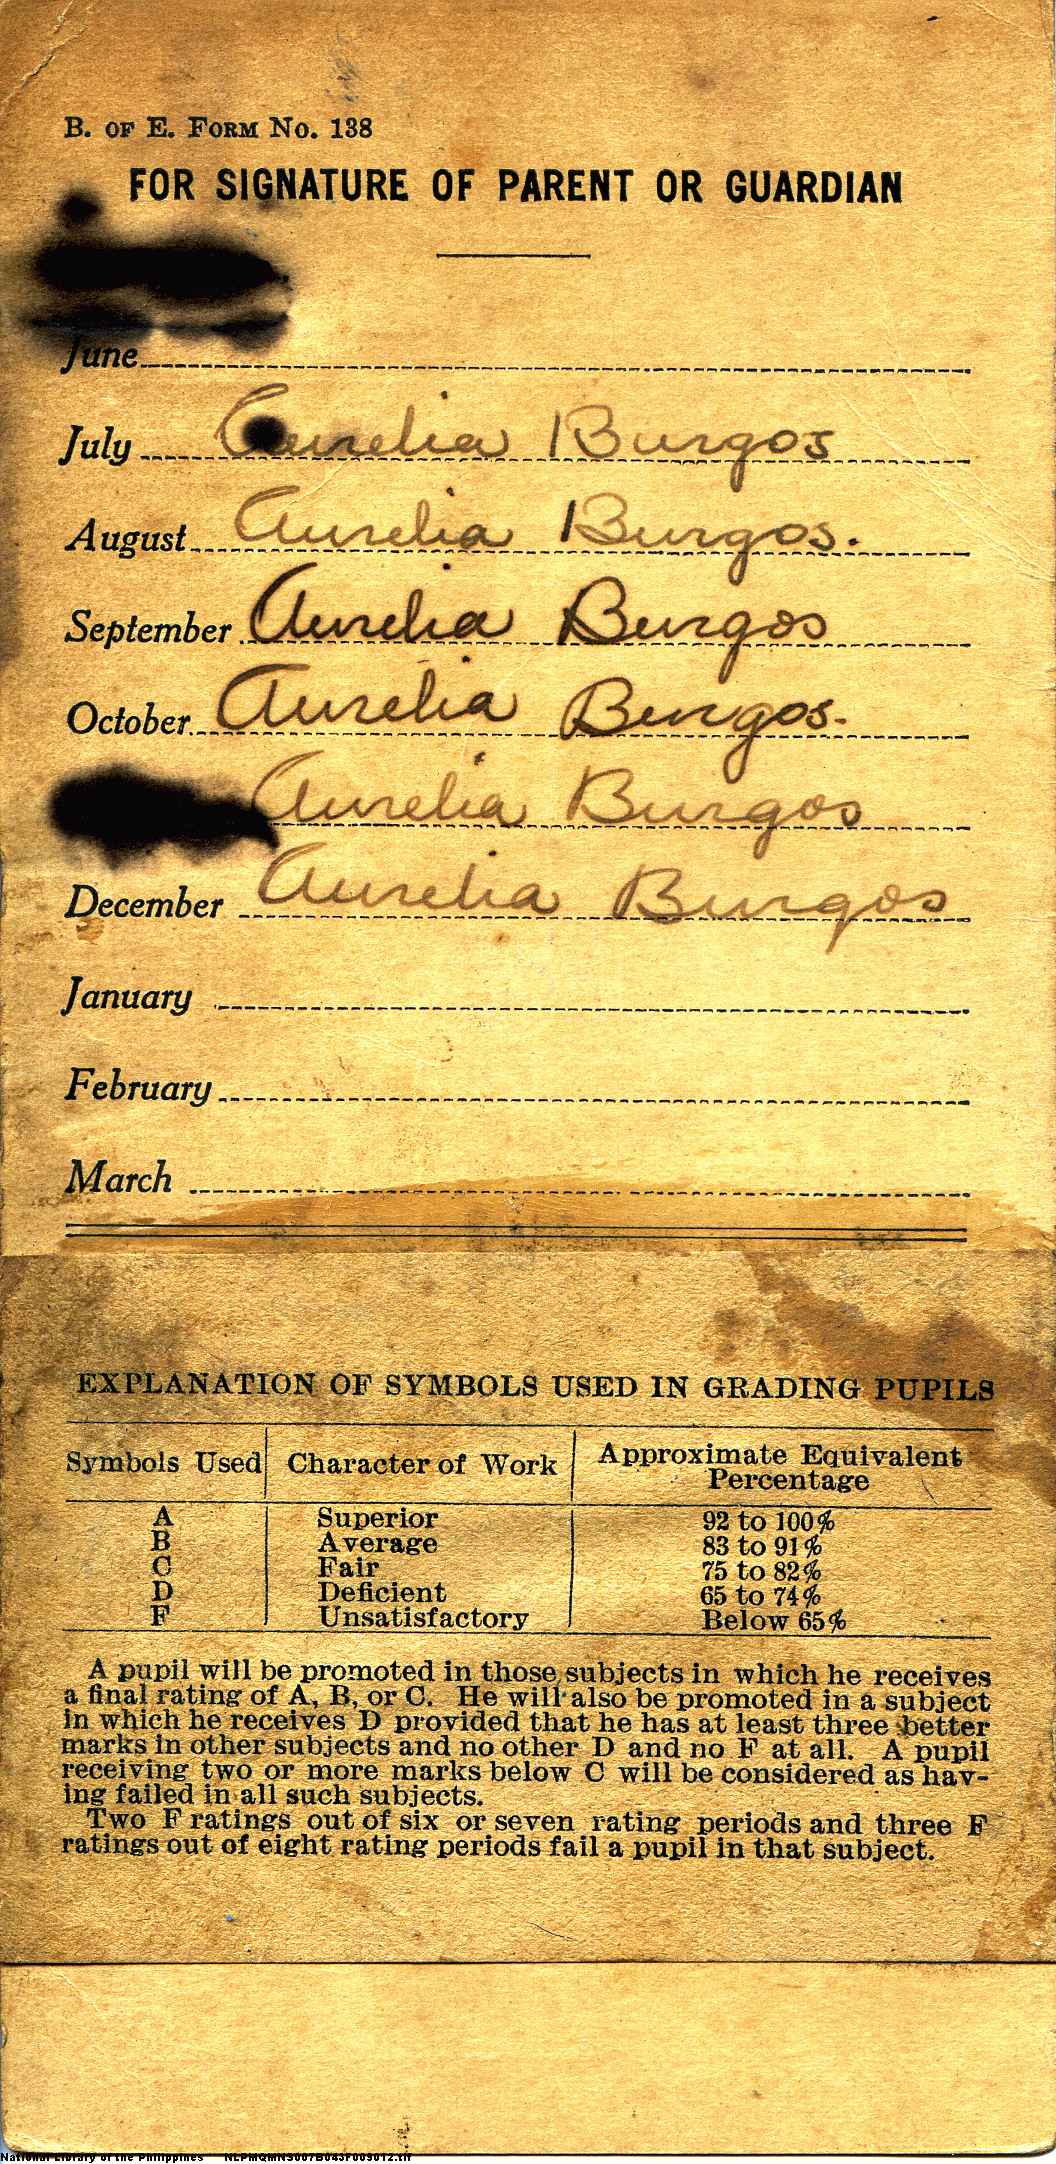 B. OF E. FORM NO. 138
FOR SIGNATURE OF PARENT OR GUARDIAN
June
July Aurelia Burgos
August Aurelia Burgos.
September Aurelia Burgos
October Aurelia Burgos.
Aurelia Burgos
December Aurelia Burgos
January
February
March
EXPLANATION OF SYMBOLS USED IN GRADING PUPILS
Symbols Used Character of Work Approximate Equivalent Percentage
A Superior 92 to 100%
B Average 83 to 91%
C Fair 75 to 82%
D Deficient 65 to 74%
F Unsatisfactory Below 65%
A pupil will be promoted in those subjects in which he receives
a final rating of A, B, or C. He will also be promoted in a subject
in which he receives D provided that he has at least three better
marks in other subjects and no other D and no F at all. A pupil
receiving two or more marks below C will be considered as hav-
ing failed in all such subjects.
Two F ratings out of six or seven rating periods and three F
ratings out of eight rating periods fail a pupil in that subject.
National Library of the Philippines